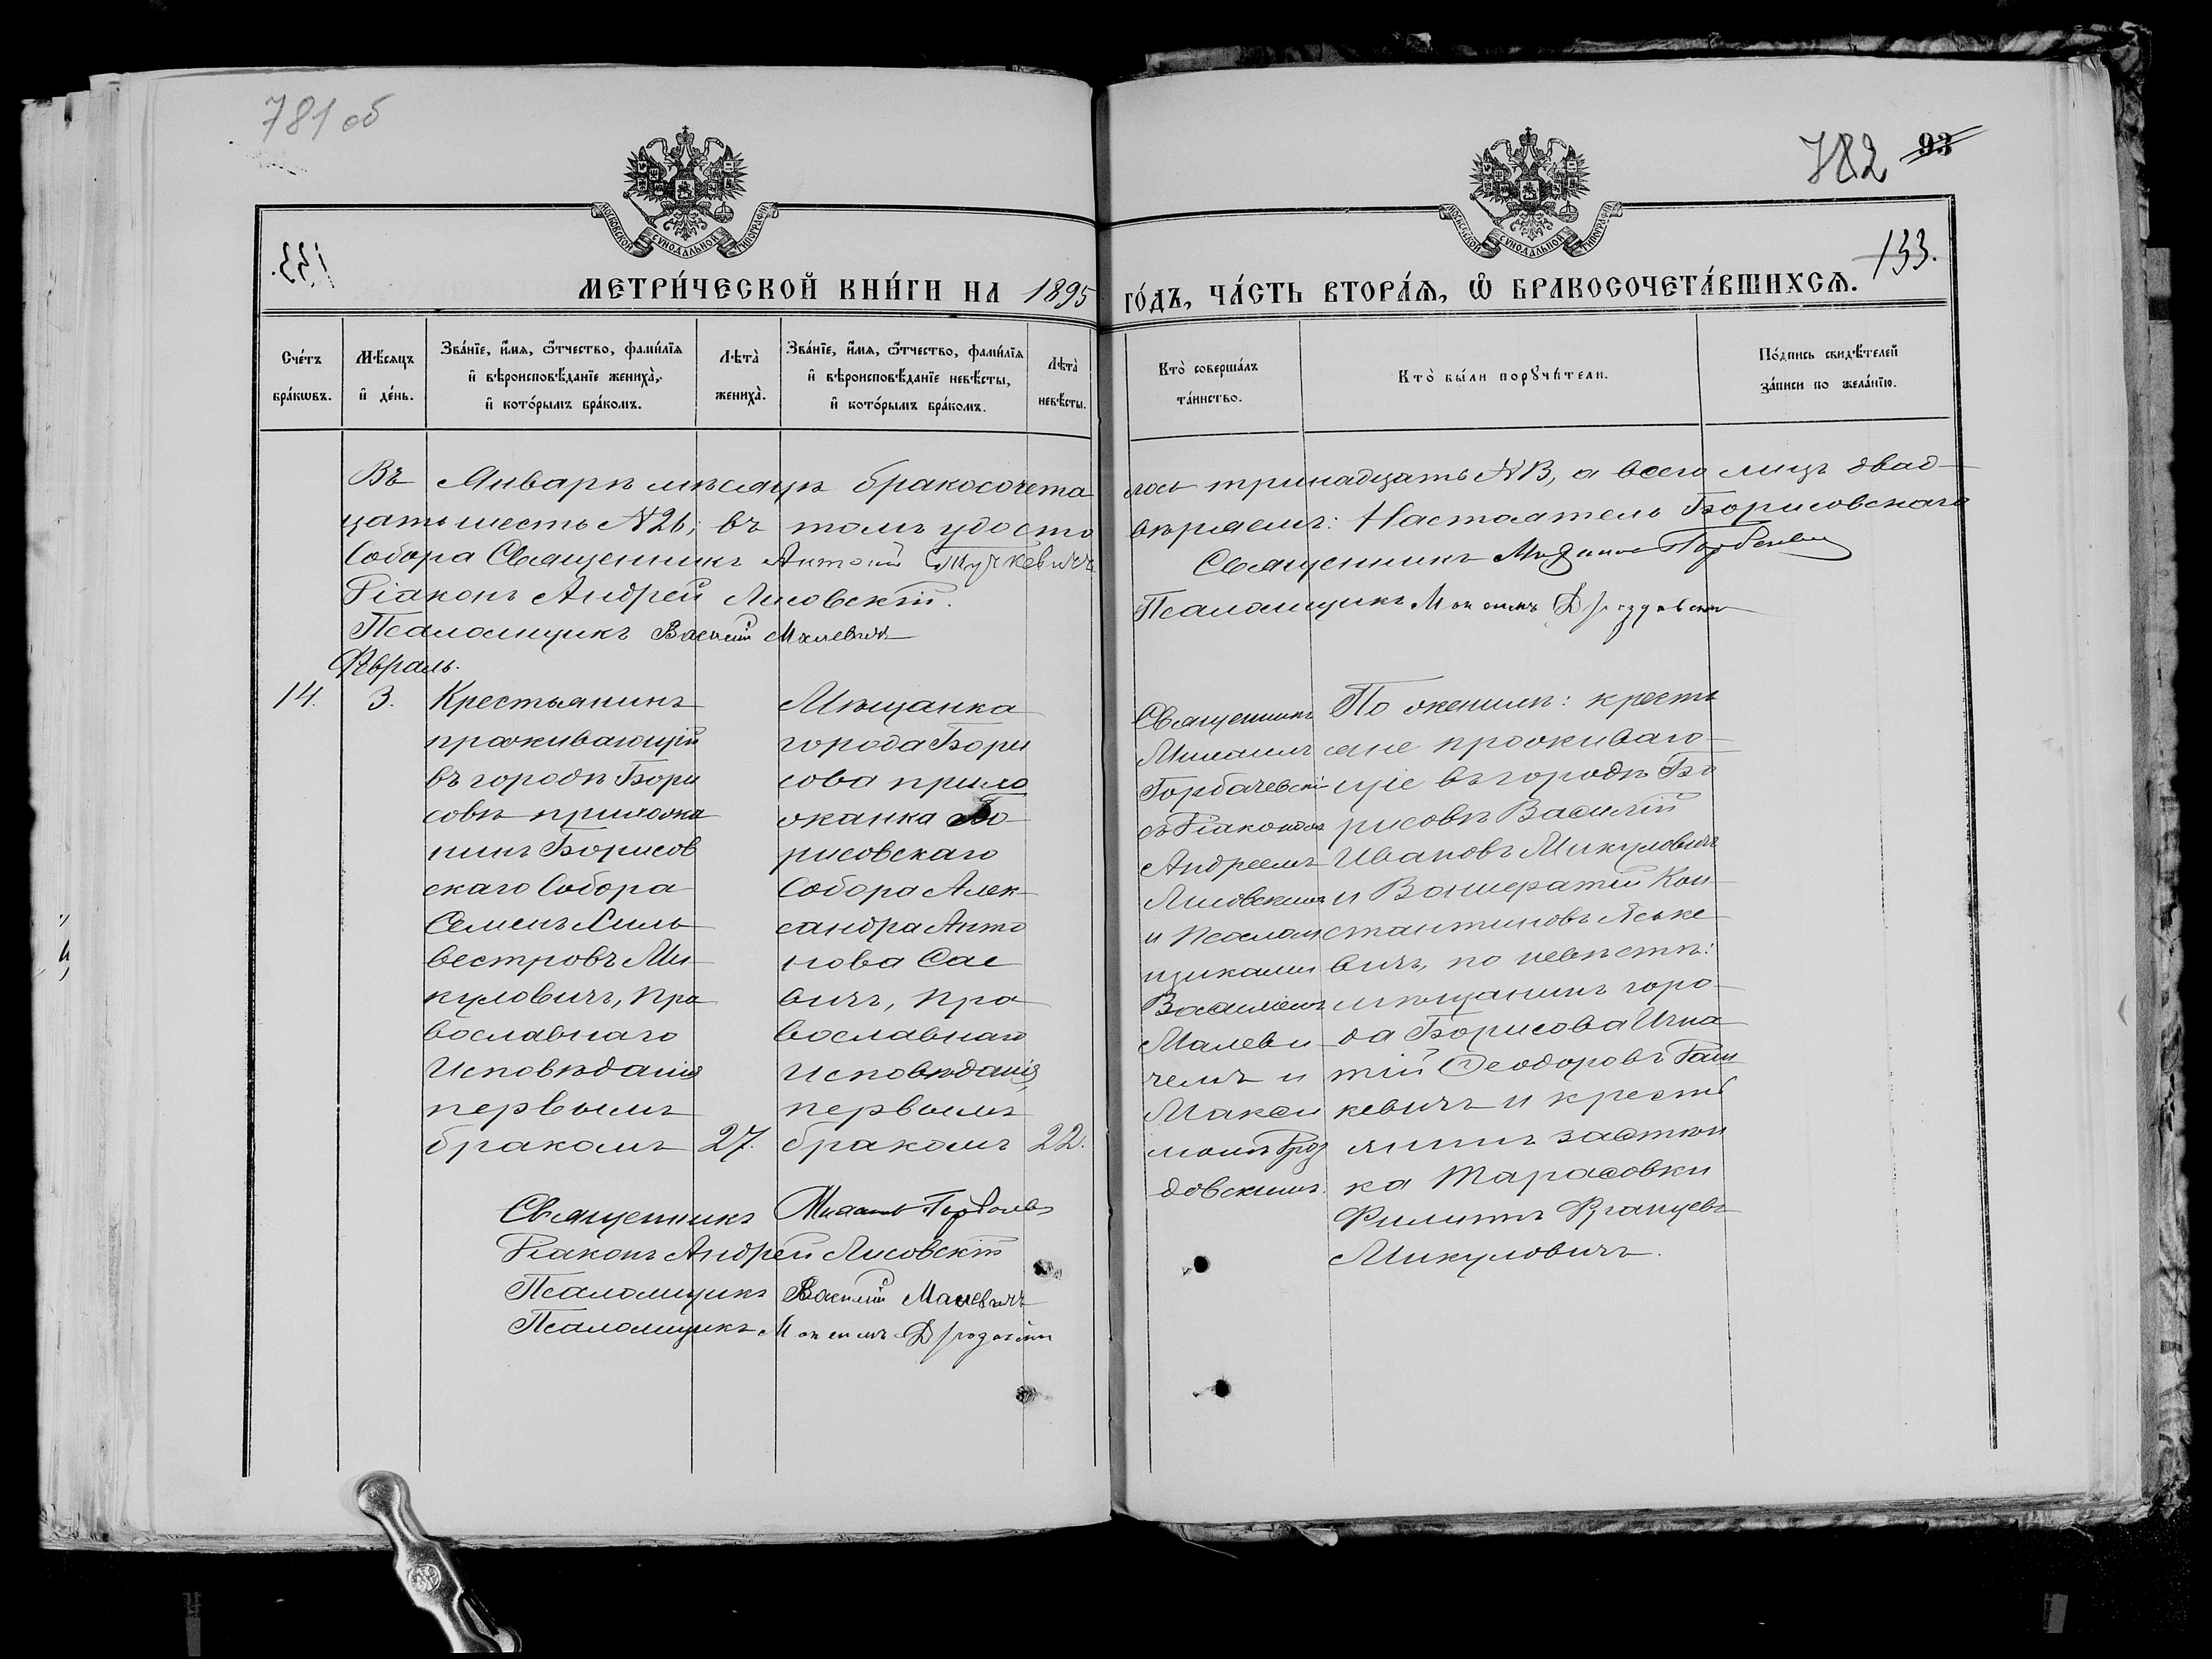 781 об
782 93
МОСКОВСКОЙ СѴНОДАЛЬНОЙ ТИПОГРАФІИ
МОСКОВСКОЙ СѴНОДАЛЬНОЙ ТИПОГРАФІИ
133.
МЕТРИ́ЧЕСКОЙ КНИ́ГИ НА 1895 ГО́ДЪ, ЧА́СТЬ ВТОРА́Ѧ, Ѽ БРАКОСОЧЕТА́ВШИХСѦ.
Сче́тъ бра́кѡвъ.
Мѣ́сяцъ и҆ де́нь.
Зва́нїе, и҆́мѧ, ѻ҆́тчество, фами́лїѧ и҆ вѣроисповѣ́данїе жениха̀, и҆ кото́рымъ бра́комъ.
Лѣта̀ жениха̀.
Зва́нїе, и҆́мѧ, ѻ҆́тчество, фами́лїѧ и҆ вѣроисповѣ́данїе невѣ́сты, и҆ кото́рымъ бра́комъ.
Лѣта̀ невѣ́сты.
Кто̀ соверша́лъ та́инство.
Кто̀ бы́ли порꙋчи́тели.
По́дпись свидѣ́телей за́писи по жела́нїю.
Въ Январѣ мѣсяцѣ бракосочета
лось тринадцать №13, а всего лицъ двад-
цать шесть №26; въ томъ удосто
вѣряемъ: Настоятель Борисовскаго
Собора Священникъ Антоній
Священникъ
Діаконъ Андрей Лисовскій.
Псаломщикъ Максимъ Дроздовскій
Псаломщикъ Василій Малевичъ
Февраль.
14. 3.
Крестьянинъ
проживающій
въ городѣ Бори
совѣ прихожа
нинъ Борисов
скаго Собора
Семенъ Силь-
вестровъ Ми-
куловичъ, Пра
вославнаго
Исповѣданія
первымъ
бракомъ 27.
Мѣщанка
города Бори
сова прихо
жанка Бо-
рисовскаго
Собора Алек-
сандра Анто
нова Сае
вичъ, Пра
вославнаго
Исповѣданія,
первымъ
бракомъ 22.
Священникъ
Михаилъ
Горбачевскій
съ Діакономъ
Андреемъ
Лисовскимъ
и Псалом
щиками
Василіемъ
Малеви
чемъ и
Макси
момъ Дроз
довскимъ.
По женихѣ: кресть
яне проживаю-
щіе въ городѣ Бо
рисовѣ Василій
Ивановъ Микуловичъ
и Кон-
стантиновъ
вичъ, по невѣстѣ:
мѣщанинъ горо-
да Борисова Игна
тій Ѳеодоровъ
кевичъ и кресть
янинъ застѣн
ка Тарасовки
Филиппъ
Микуловичъ.
Священникъ
Діаконъ Андрей Лисовскій
Псаломщикъ Василій Малевичъ
Псаломщикъ Максимъ